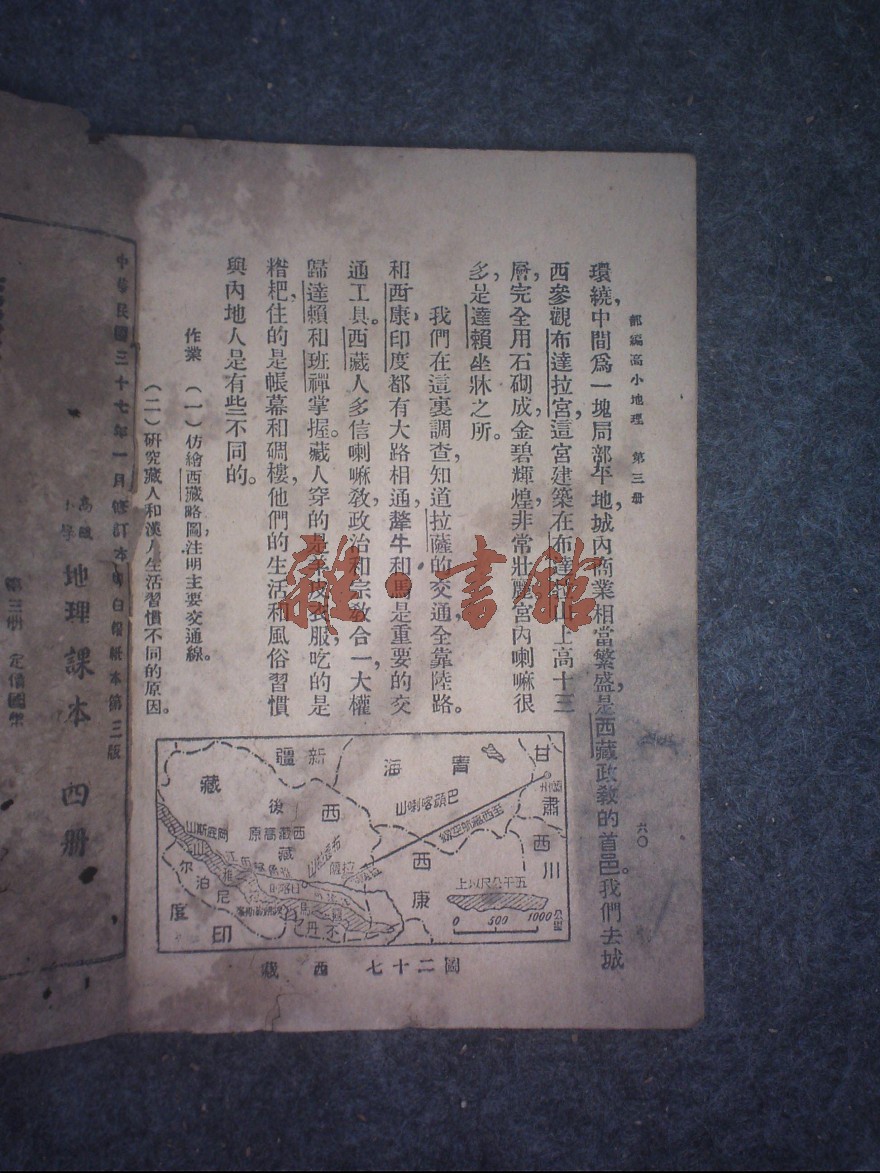 部編高小地理 第三册
六〇
環繞,中間爲一塊局部平地,城內商業相當繁盛,是西藏政教的首邑。我們去城
西參觀布達拉宮,這宮建築在布達拉山上,高十三
層,完全用石砌成,金碧輝煌,非常壯麗,宮內喇嘛很
多,是達賴坐牀之所。
我們在這裏調查,知道拉薩的交通,全靠陸路。
和西康,印度都有大路相通,犛牛和馬是重要的交
通工具。西藏人多信喇嘛敎,政治和宗敎合一,大權
歸達賴和班禪掌握。藏人穿的是羊皮衣服,吃的是
糌粑,住的是帳幕和碉樓,他們的生活和風俗習慣,
與內地人是有些不同的。
作業 (一)仿繪西藏略圖,注明主要交通線。
(二)硏究藏人和漢人生活習慣不同的原因。
新疆
青海
甘肅
藏
後藏
西
西藏高原
巴顏喀喇山
西康
四川
岡底斯山
拉薩
尼泊尔
不丹
印度
五千公尺以上
0 500 1000公里
圖二十七 西藏
雜·書館
中華民國三十七年一月修訂本 白報紙本第三版
高級
小學
地理課本 四册
第三册 定價國幣